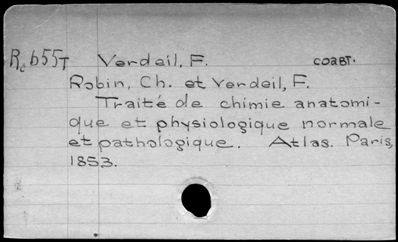 Rc b55T Verdeil, F. coabt.
Robin, Ch. et Verdeil, F.
Traité de chimie anatomi-
que et physiologique normale
et pathologique. Atlas. Paris,
1853.